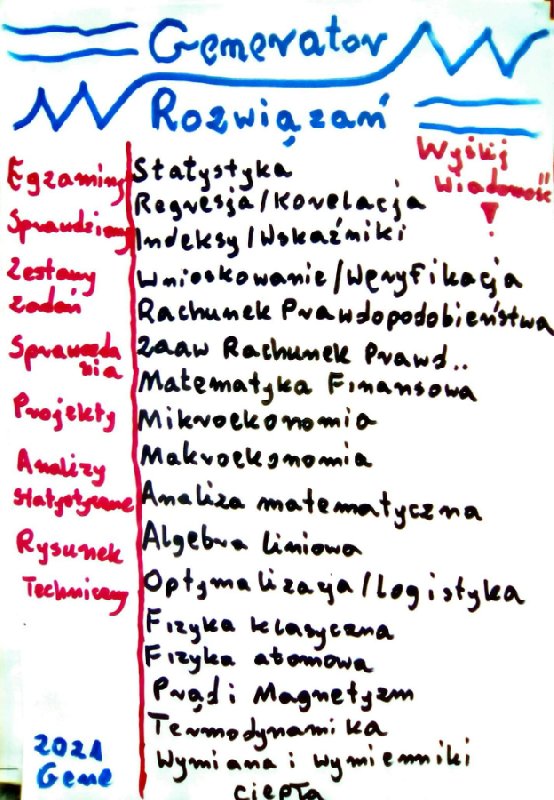 Generator
Rozwiązań
Wyślij
wiadomość
Egzaminy
Sprawdziany
Zestawy
zadań
Sprawozda
nia
Projekty
Analizy
statystyczne
Rysunek
Techniczny
Statystyka
Regresja/Korelacja
Indeksy/Wskaźniki
Wnioskowanie/Weryfikacja
Rachunek Prawdopodobieństwa
Zaaw Rachunek Prawd..
Matematyka Finansowa
Mikroekonomia
Makroekonomia
Analiza matematyczna
Algebra liniowa
Optymalizacja/Logistyka
Fizyka klasyczna
Fizyka atomowa
Prąd i Magnetyzm
Termodynamika
Wymiana i wymienniki
ciepła
2021
Gene